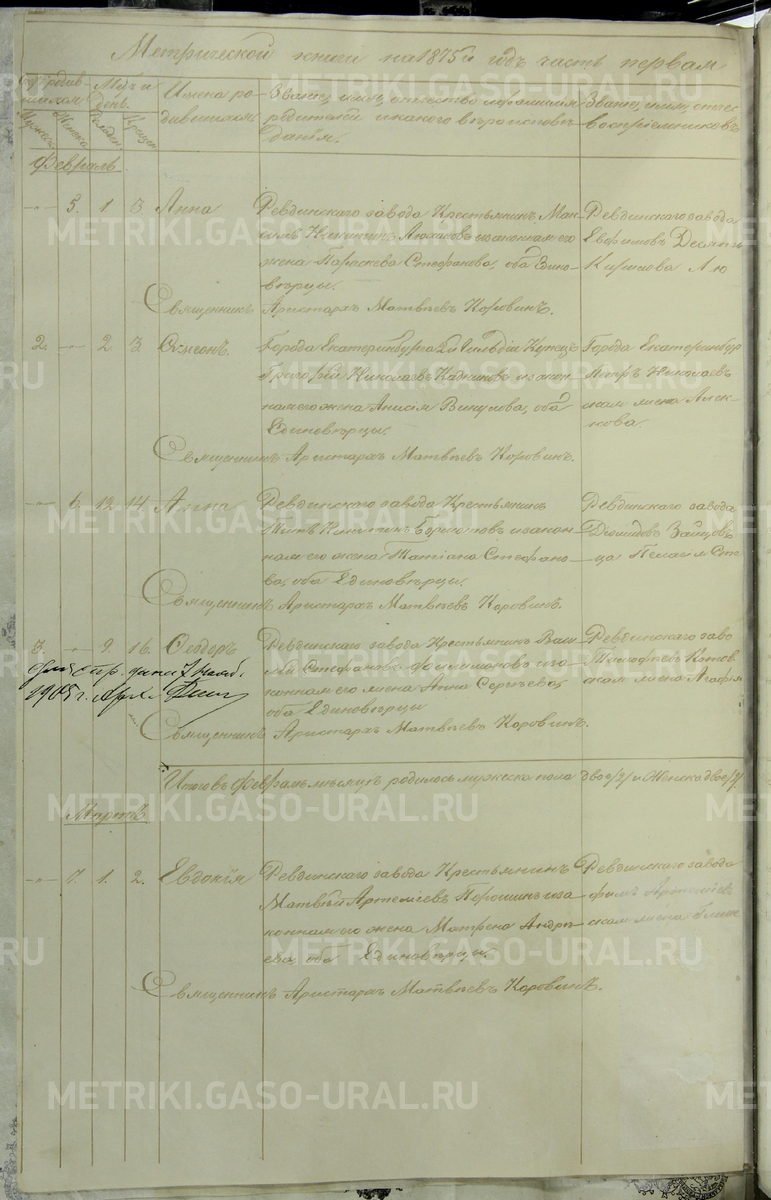 Метрической книги на 1875й годъ часть первая
Счетъ родив-шихся. Мужеска. Женска.
Мѣс. и день. Рожден. Крещен.
Имена ро-
дившихся.
Званіе, имя, отчество и фамилія
родителей и какого вѣроисповѣ-
данія.
Званіе, имя, отчес
воспріемниковъ
Февраль
5. 1 3 Анна
Ревдинскаго завода Крестьянинъ Мак-
симъ Никитинъ и законная его
жена Параскева Стефанова, оба Едино-
вѣрцы.
Ревдинскаго завода
Евфимовъ
Священникъ Аристархъ Матвѣевъ Коровинъ.
2. 2 3 Сѵмеонъ.
Города Екатеринбурга 2й Гильдіи Купецъ
Григорій Николаевъ и закон-
ная его жена Анисія Викулова, оба
Единовѣрцы.
Города Екатеринбур
Петръ Николаевъ
ская жена Алек-
Священникъ Аристархъ Матвѣевъ Коровинъ.
6. 12 14 Анна
Ревдинскаго завода Крестьянинъ
Титъ Никитинъ и закон-
ная его жена Татіана Стефано-
ва, оба Единовѣрцы.
Ревдинскаго завода
Діомидовъ Зайцовъ
ца Пелагія Сте
Священникъ Аристархъ Матвѣевъ Коровинъ.
3. 9. 16. Ѳеодоръ
Ревдинскаго завода Крестьянинъ Васи-
лій Стефановъ и за-
конная его жена Анна Сергѣева,
оба Единовѣрцы
Ревдинскаго заво
Тимофеевъ Котов
ская жена Агафія
1905 г.
Священникъ Аристархъ Матвѣевъ Коровинъ.
Итого въ Февралѣ мѣсяцѣ родилось мужеска пола двое /2/ и Женска двое /2/
Мартъ
7. 1. 2. Евдокія
Ревдинскаго завода Крестьянинъ
Матвѣй Артеміевъ Порошинъ и за
конная его жена Матрена Андре-
ева, оба Единовѣрцы.
Ревдинскаго завода
фимъ Артеміевъ
ская жена
Священникъ Аристархъ Матвѣевъ Коровинъ.
METRIKI.GASO-URAL.RU